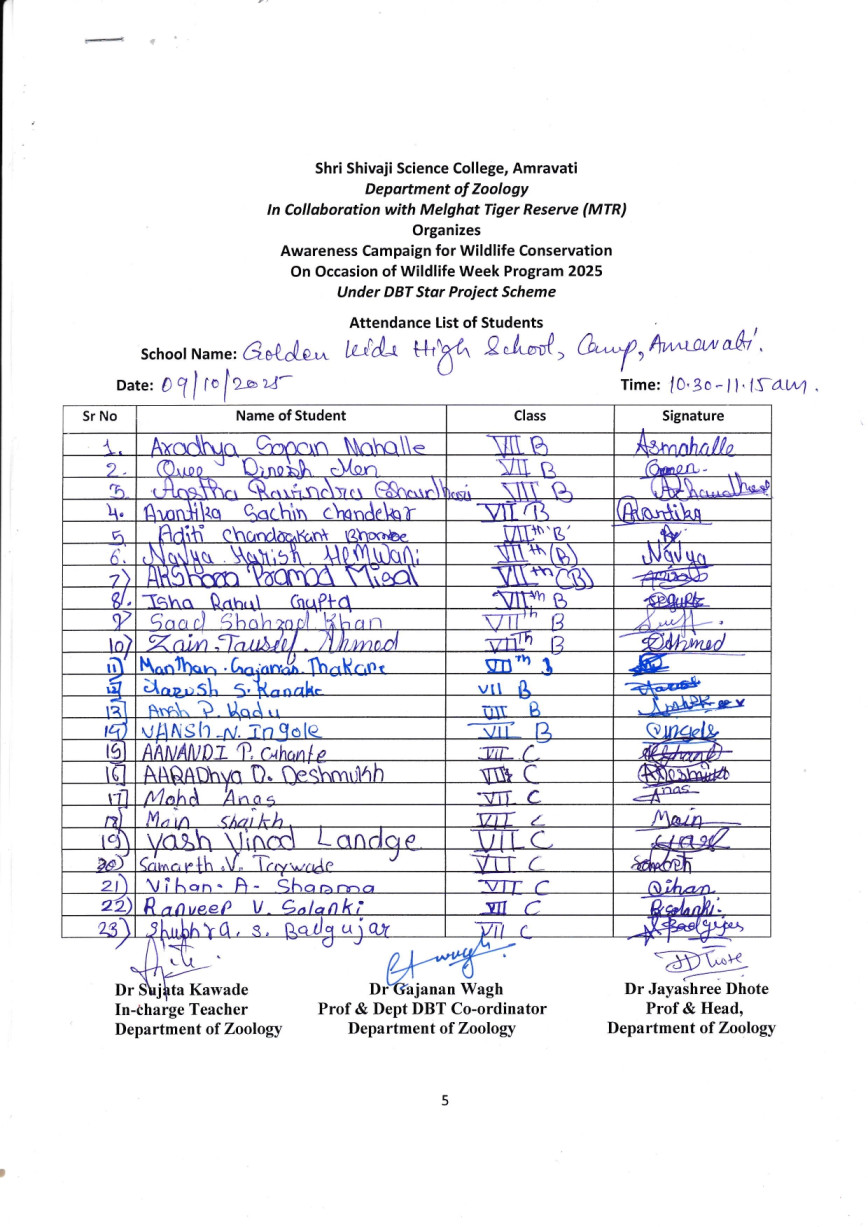 Shri Shivaji Science College, Amravati
Department of Zoology
In Collaboration with Melghat Tiger Reserve (MTR)
Organizes
Awareness Campaign for Wildlife Conservation
On Occasion of Wildlife Week Program 2025
Under DBT Star Project Scheme
Attendance List of Students
School Name: Golden Kids High School, Camp, Amravati.
Date: 09/10/2025 Time: 10.30-11.15am.
Sr No Name of Student Class Signature
1. Aradhya Gopan Mahalle VII B Asmahalle
2. Dinesh Men VII B
3. Agstha Ravindra Chaudhari VIII B
4. Avantika Sachin Chandekar VII B Avantika
5. Aditi Chandrakant Bhombe VIIth 'B'
6. Navya Harish Hemwani VIIth (B) Navya
7) Pramod Misal VIIth (B)
8/. Isha Rahul Gupta VIIth B
9) Saad Shahzad Khan VIIth B
10) Zain. Tauseef. Ahmed VIIth B
11) Manthan. Gajanan. Thakare VIIth B
12) S. Kanake VII B
13) Ansh P. Kadu VII B
14) VANSh. N. Ingole VII B
15) AANANDI P. Ghante VII C
16) AARADhya D. Deshmukh VII C
17) Mohd Anas VII C Anas
18) Main Shaikh VII C Main
19) Yash Vinod Landge VII C
20) Samarth. V. Taywade VII C
21) Vihan. A- Sharma VII C Vihan
22) Ranveer V. Solanki VII C Rsolanki.
23) Shubhra. S. Badgujar VII C
Dr Sujata Kawade Dr Gajanan Wagh Dr Jayashree Dhote
In-charge Teacher Prof & Dept DBT Co-ordinator Prof & Head,
Department of Zoology Department of Zoology Department of Zoology
5